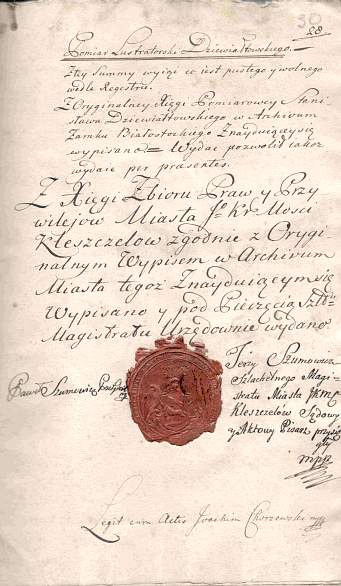 30
28
Pomiar Lustratorski Dziewiałtowskiego.
Z tey Summy wyiąć co iest pustego y wolnego
wedle Regestru.
Z Oryginalney Xięgi Pomiarowey Stani-
sława Dziewiałtowskiego w Archivum
Zamku Białostockiego Znayduiącey się
wypisano Wydać pozwolił iakoż
wydaie per præsentes.
Z Xięgi Zbioru Praw y Przy
wilejow Miasta Kr Mosci
Kleszczelow zgodnie z Orygi
nalnym Wypisem w Archivum
Miasta tegoż Znayduiącym się
Wypisano y pod Pieczęcią
Magistratu Urzędownie wydano
Jerzy Szumowicz
Szlachetnego Magi-
stratu Miasta JKMC
Kleszczelów Sądowy
y Aktowy Pisarz przysię
gły
mpp
Paweł Szumowicz
Legit cum Actis Joachim Chorzewski mpp